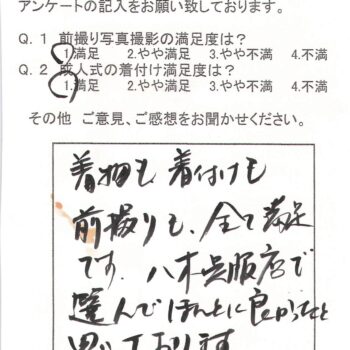 アンケートの記入をお願い致しております。
Q.1 前撮り写真撮影の満足度は?
1.満足 2.やや満足 3.やや不満 4.不満
Q.2 成人式の着付け満足度は?
1.満足 2.やや満足 3.やや不満 4.不満
その他 ご意見、ご感想をお聞かせください。
着物も着付けも
前撮りも、全て満足
です。八木呉服店で
選んでほんとに良かったと
思っております